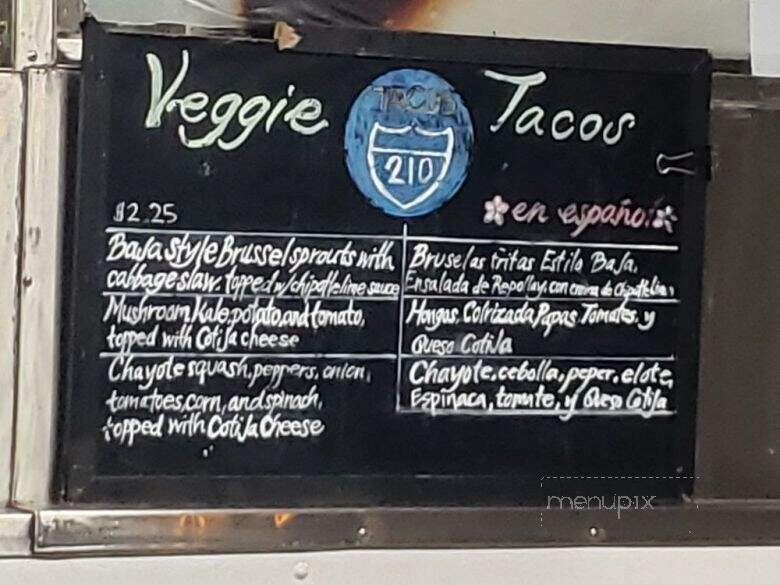 Veggie Tacos
TACOS
210
$2.25
en español
Baja Style Brussel sprouts with
cabbage slaw. topped w/ chipotle lime sauce
Mushroom, Kale, potato, and tomato,
topped with Cotija cheese
Chayote squash, peppers, onion,
tomatoes, corn, and spinach,
topped with Cotija Cheese
Bruselas fritas Estilo Baja,
Ensalada de Repollo y, con crema de Chipotle
Hongas, Colrizada, Papas, Tomates, y
Queso Cotija
Chayote, cebolla, peper, elote,
Espinaca, tomate, y Queso Cotija
menupix